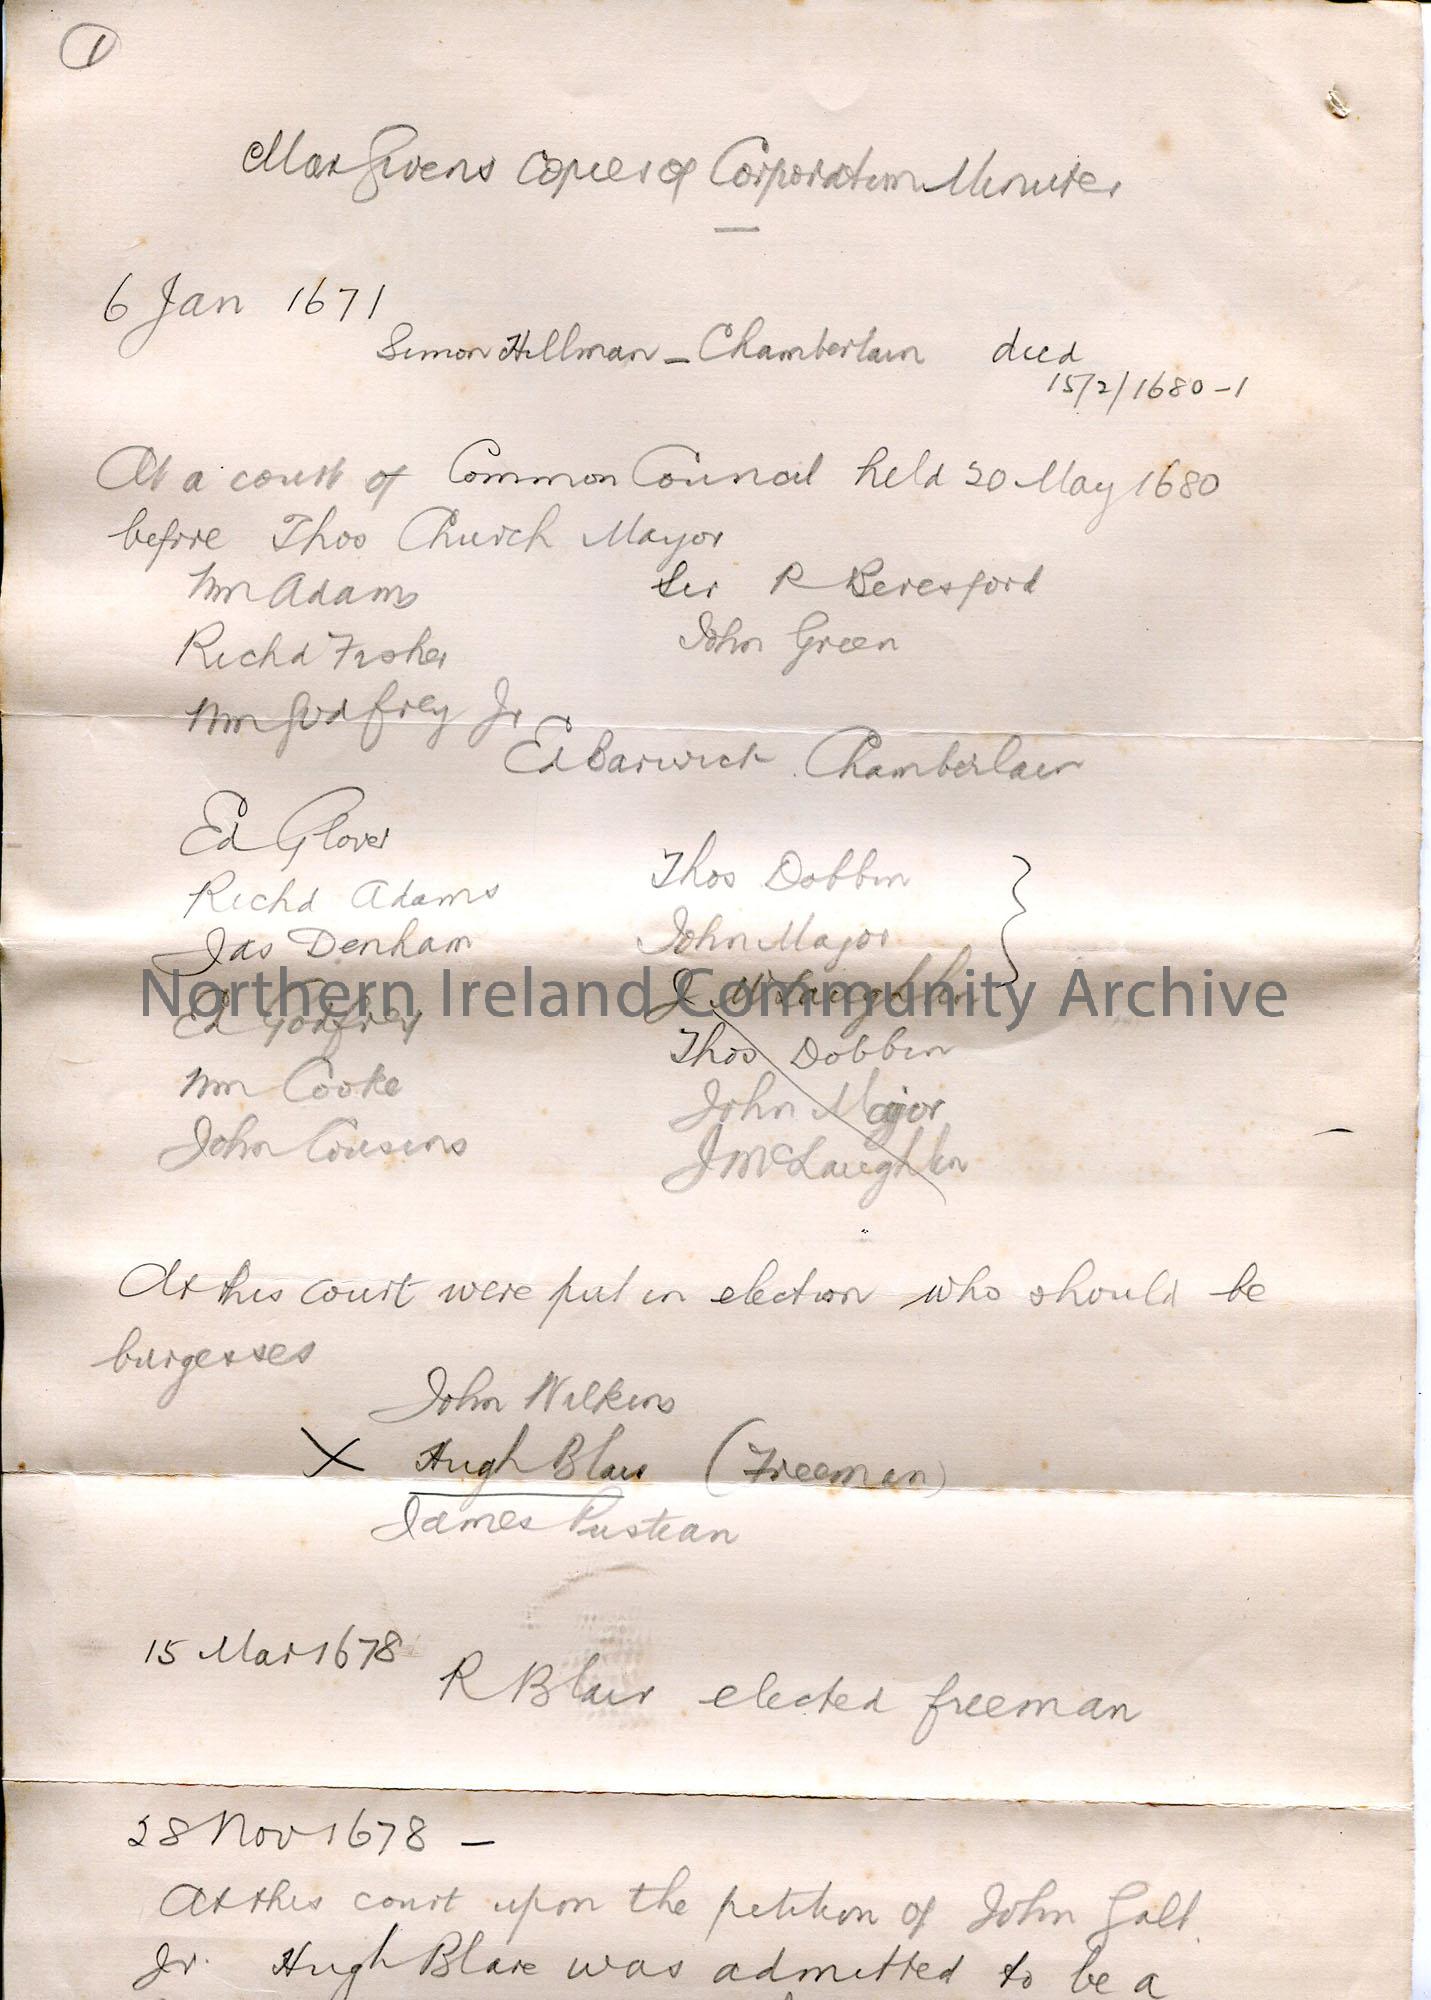 1
Max Givens Copies of Corporation Minutes
6 Jan 1671
Simon Hillman - Chamberlain died
15/2/1680-1
At a court of Common Council held 20 May 1680
before Thos Church Mayor
Wm Adams Sir R Beresford
Richd Fisher John Green
Wm Godfrey Jr
Ed Barwick Chamberlain
Ed Glover
Thos Dobbin
Richd Adams
John Major
Jas Denham
J McLaughlin
Ed Godfrey
Thos Dobbin
Wm Cooke
John Major
John Cousins
J McLaughlin
Northern Ireland Community Archive
At this court were put in election who should be
burgesses
John Wilkins
X Hugh Blair (Freeman)
James
15 Mar 1678
R Blair elected freeman
28 Nov 1678 -
At this court upon the petition of John Galt
Jr. Hugh Blair was admitted to be a